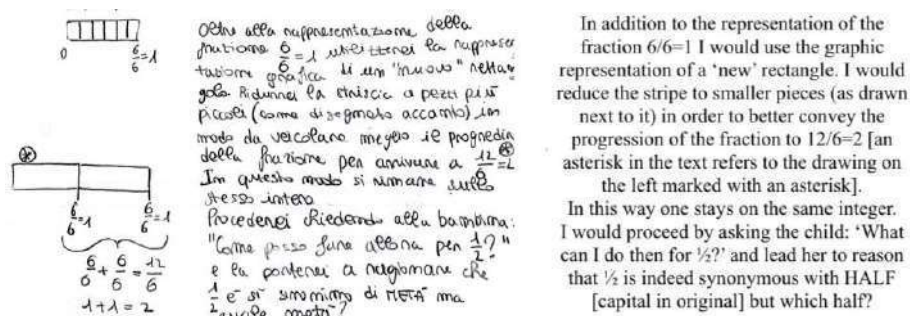 0 6/6=1
6/6=1 6/6=1
6/6 + 6/6 = 12/6
1+1=2
Oltre alla rappresentazione della
frazione 6/6=1 utilizzerei la rappresen
tazione grafica di un "nuovo" rettan
golo. Ridurrei la striscia a pezzi più
piccoli (come disegnato accanto) in
modo da veicolare meglio il progredire
della frazione per arrivare a 12/6=2 *
In questo modo si rimane sullo
stesso intero
Procederei chiedendo alla bambina:
"Come posso fare allora per 1/2?"
e la porterei a ragionare che
1/2 è sì sinonimo di METÀ ma
quale metà?
In addition to the representation of the
fraction 6/6=1 I would use the graphic
representation of a ‘new’ rectangle. I would
reduce the stripe to smaller pieces (as drawn
next to it) in order to better convey the
progression of the fraction to 12/6=2 [an
asterisk in the text refers to the drawing on
the left marked with an asterisk].
In this way one stays on the same integer.
I would proceed by asking the child: ‘What
can I do then for ½?’ and lead her to reason
that ½ is indeed synonymous with HALF
[capital in original] but which half?